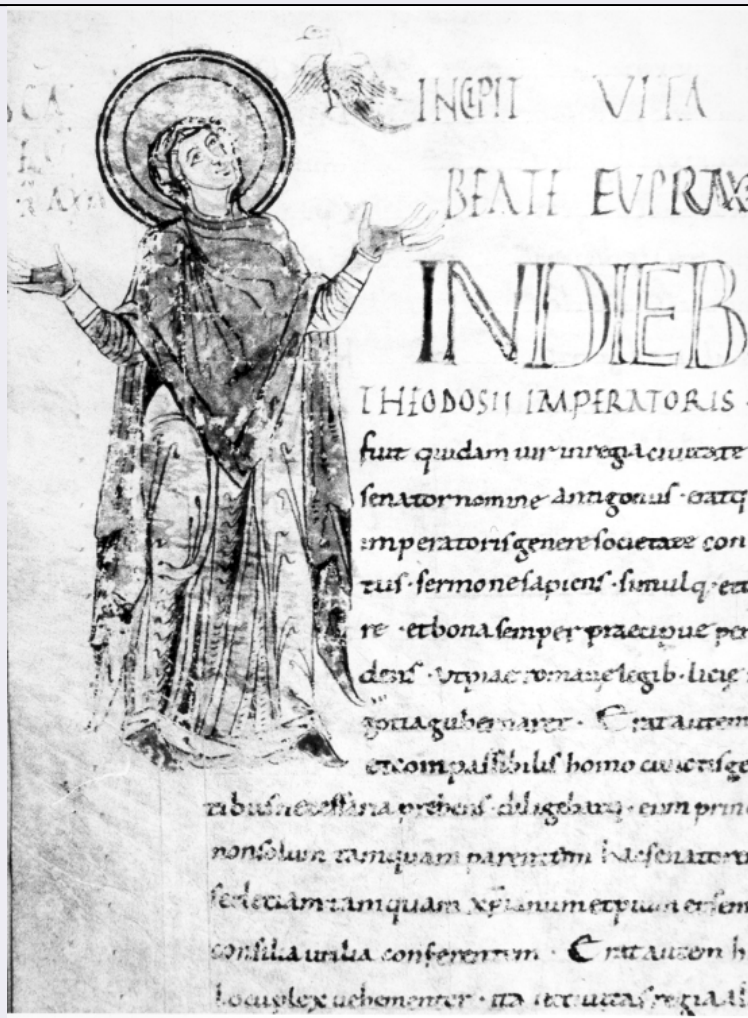 SCA
EU
PRAXIA
INCIPIT VITA
BEATE EVPRAX
INDIEB
THEODOSII IMPERATORIS ·
fuit quidam uir inregiaciuitate
senatornomine antigonus · eratq
imperatorisgenere societate con
tus · sermonesapiens · simulq · et
re · etbona semper praecipue per
dens · Utpiae romane legib · licie
gotiagubernaret · Erat autem
etcompassibilis homo cunctisge
tibus necessaria prebens · diligebatq · eum prin
nonsolum tamquam parentem hacsenatore
sedetiam tamquam xpianum etpium etsem
consilia utilia conferentem · Erat autem h
locuplex uehementer · ita ut ciuitas regia